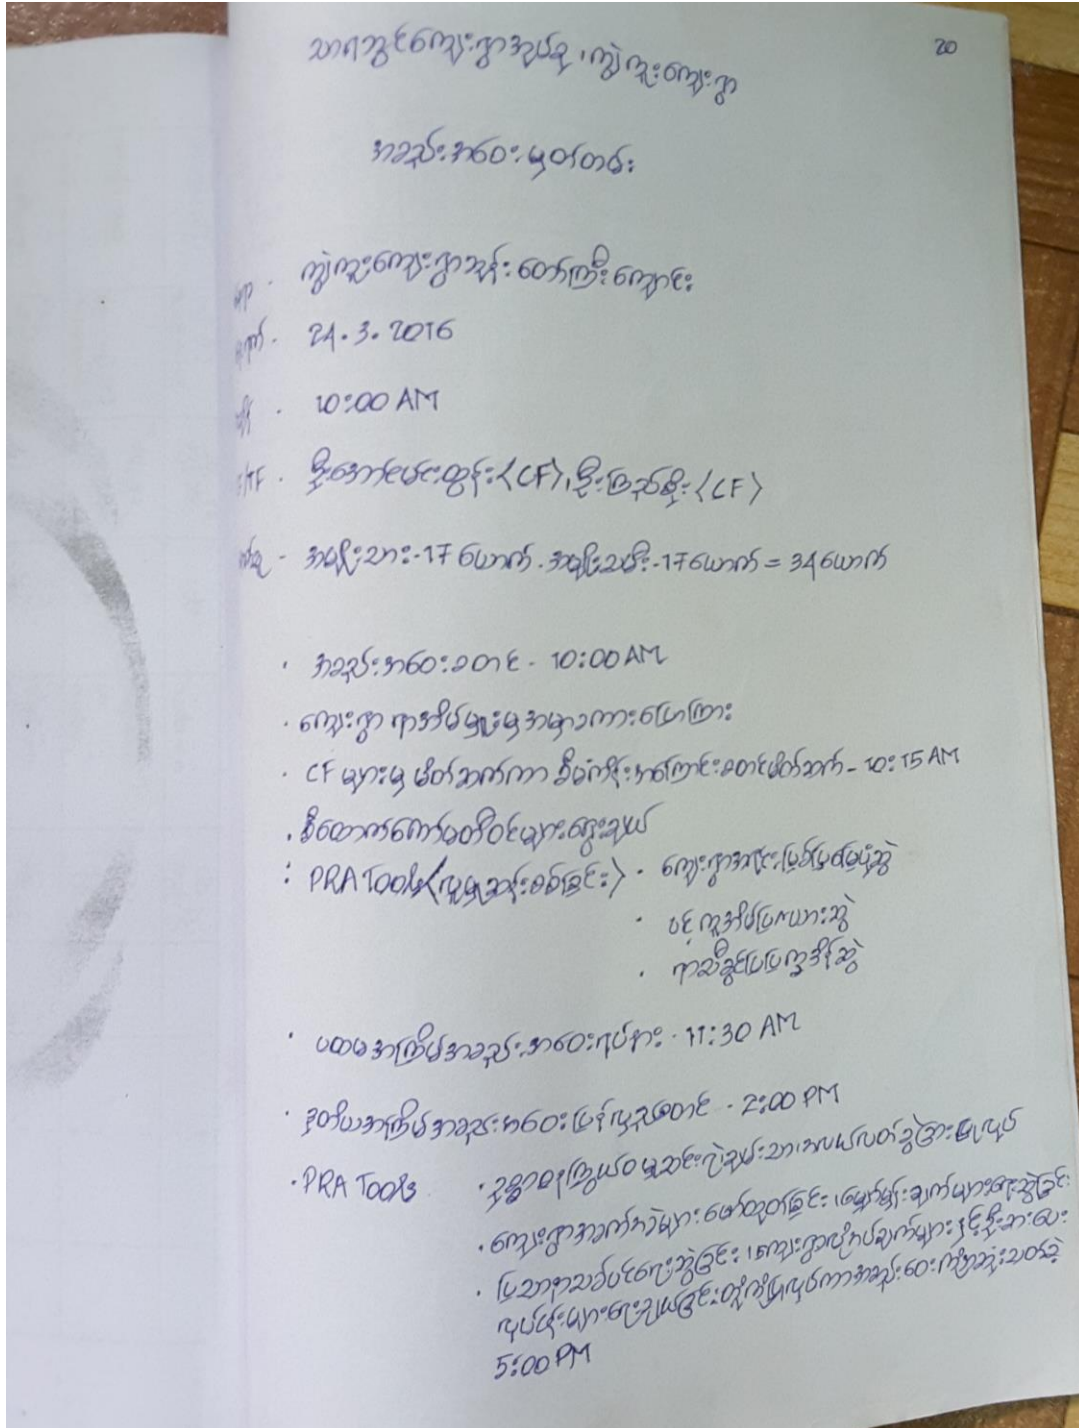 20
သာရဘွင်ကျေးရွာအုပ်စု၊ ကျွဲကူးကျေးရွာ
အစည်းအဝေးမှတ်တမ်း
ကျွဲကူးကျေးရွာဘုန်းတော်ကြီးကျောင်း
24.3.2016
10:00 AM
စိုးအောင်မင်းထွန်း <CF>၊ စိုးကြည်စိုး <CF>
အမျိုးသား-17 ယောက်. အမျိုးသမီး-17 ယောက် = 34 ယောက်
. အစည်းအဝေးစတင် - 10:00 AM
. ကျေးရွာ ရာအိမ်မှူးမှ အမှာစကားပြောကြား
. CF များမှ မိတ်ဆက်ကာ စီမံကိန်းအကြောင်းစတင်မိတ်ဆက် - 10:15 AM
. စီထောက်ကော်မတီဝင်များရွေးချယ်
: PRA Tools <လူမှုဆန်းစစ်ခြင်း> . ကျေးရွာသမိုင်းဖြစ်စဉ်မြေပုံဆွဲ
. ပင့်ကူအိမ်ပြဇယားဆွဲ
. ရာသီခွင်ပြပြက္ခဒိန်ဆွဲ
. ပထမအကြိမ်အစည်းအဝေးရပ်နား - 11:30 AM
. ဒုတိယအကြိမ်အစည်းအဝေးပြန်လည်စတင် - 2:00 PM
. PRA Tools . ဥစ္စာဓနကြွယ်ဝမှုဆင်းရဲချမ်းသာအလယ်လတ်ခွဲခြားမှုပြုလုပ်
. ကျေးရွာအခက်အခဲများဖော်ထုတ်ခြင်း၊ မျှော်မှန်းချက်များရေးဆွဲခြင်း
. ပြဿနာသစ်ပင်ရေးဆွဲခြင်း၊ ကျေးရွာလိုအပ်ချက်များနှင့်ဦးစားပေး
လုပ်ငန်းများရွေးချယ်ခြင်းတို့ကိုပြုလုပ်ကာအစည်းဝေးကိုအဆုံးသတ်ခဲ့
5:00 PM